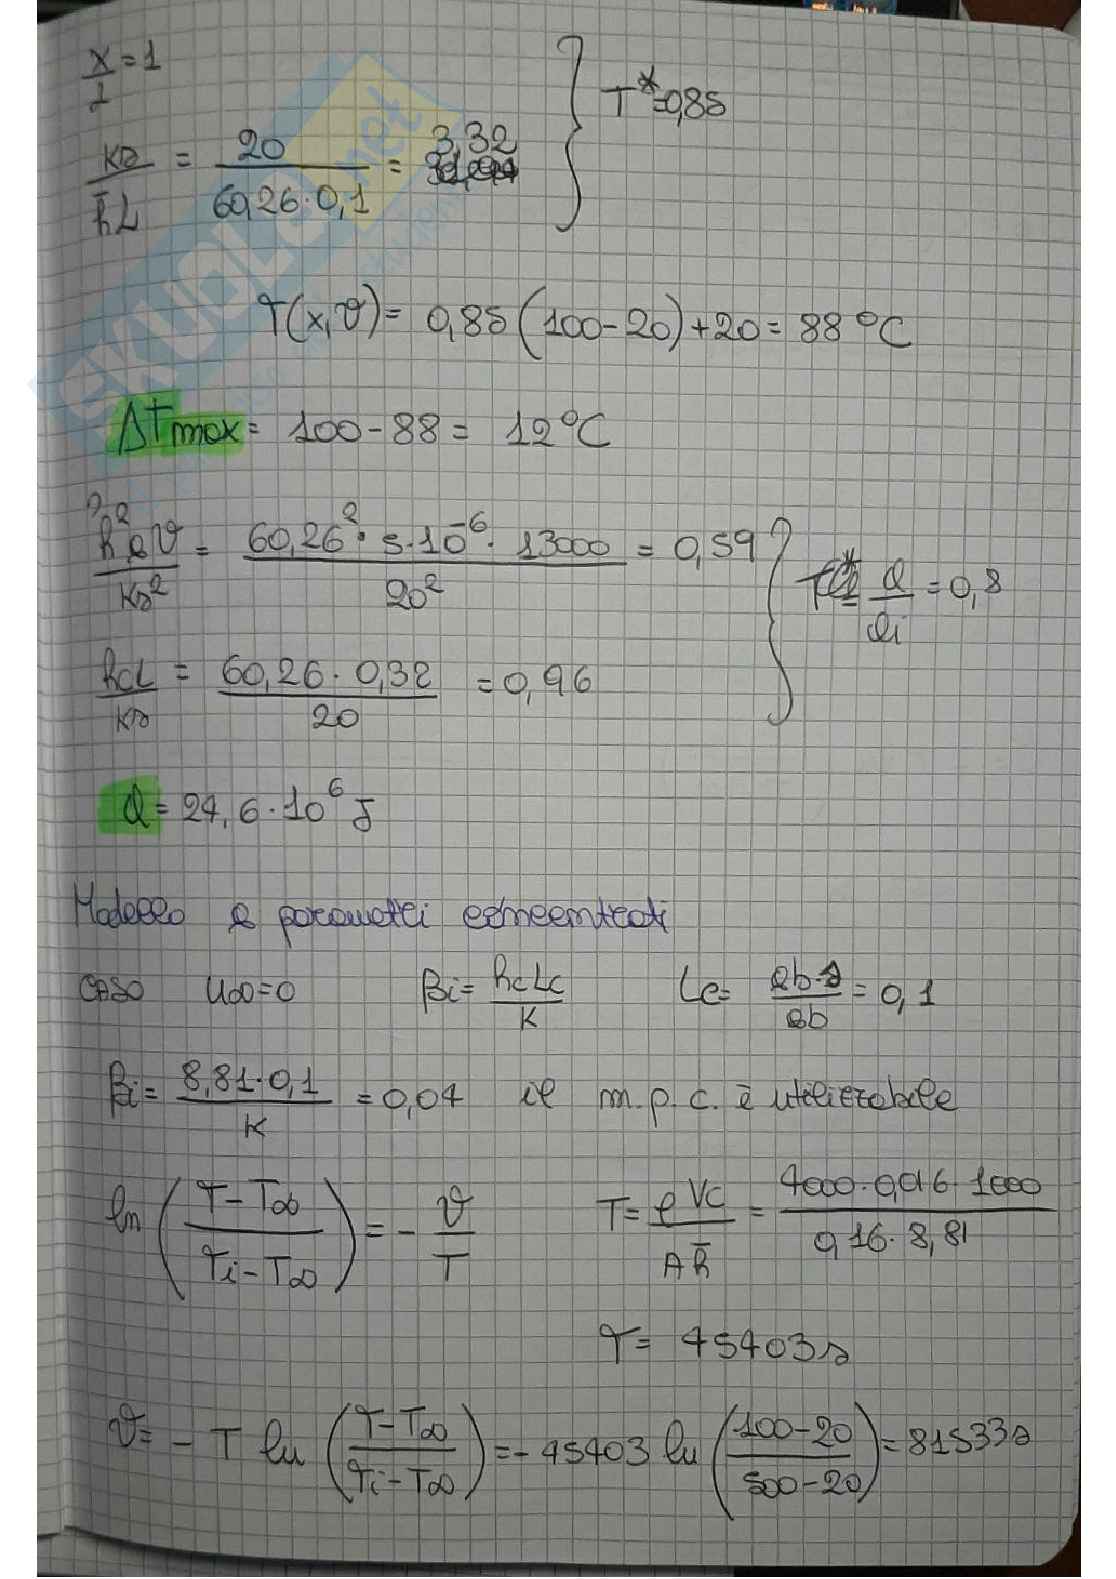 x/L = 1
T* = 0,85
ks/h̄L = 20/(60,26·0,1) = 3,32
T(x,ϑ) = 0,85 (100-20)+20 = 88 °C
ΔTmax = 100-88 = 12°C
h²αϑ/ks² = 60,26²·5·10⁻⁶·13000/20² = 0,59
Q/Qi = 0,8
hcL/ks = 60,26·0,32/20 = 0,96
Q = 24,6·10⁶ J
Modello a parametri concentrati
CASO u∞=0 Bi = hcLc/K Lc = ab·s/ab = 0,1
Bi = 8,81·0,1/K = 0,04 il m.p.c. è utilizzabile
ln (T-T∞/Ti-T∞) = - ϑ/τ τ = ρVc/Ah̄ = 4000·0,016·1000/0,16·8,81
τ = 45403 s
ϑ = - τ ln (T-T∞/Ti-T∞) = - 45403 ln (100-20/500-20) = 81533s
SKUOLA.net